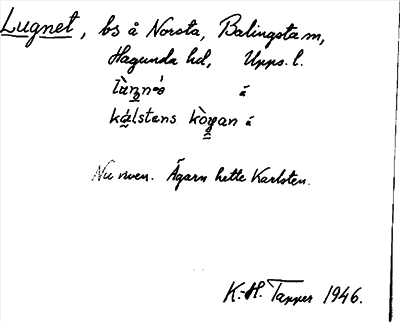 Lugnet, bs å Norsta, Balingsta sn,
Hagunda hd, Upps. l.
kálstens kògan
Nu riven. Ägarn hette Karlsten.
K.-H. Tapper 1946.